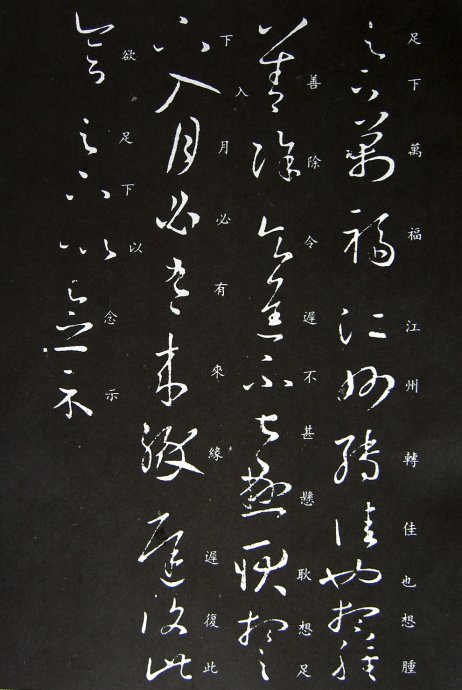 足下萬福江州轉佳也想腫
善除令遲不甚懸耿想足
下入月必有來緣遲復此
欲足下以念示